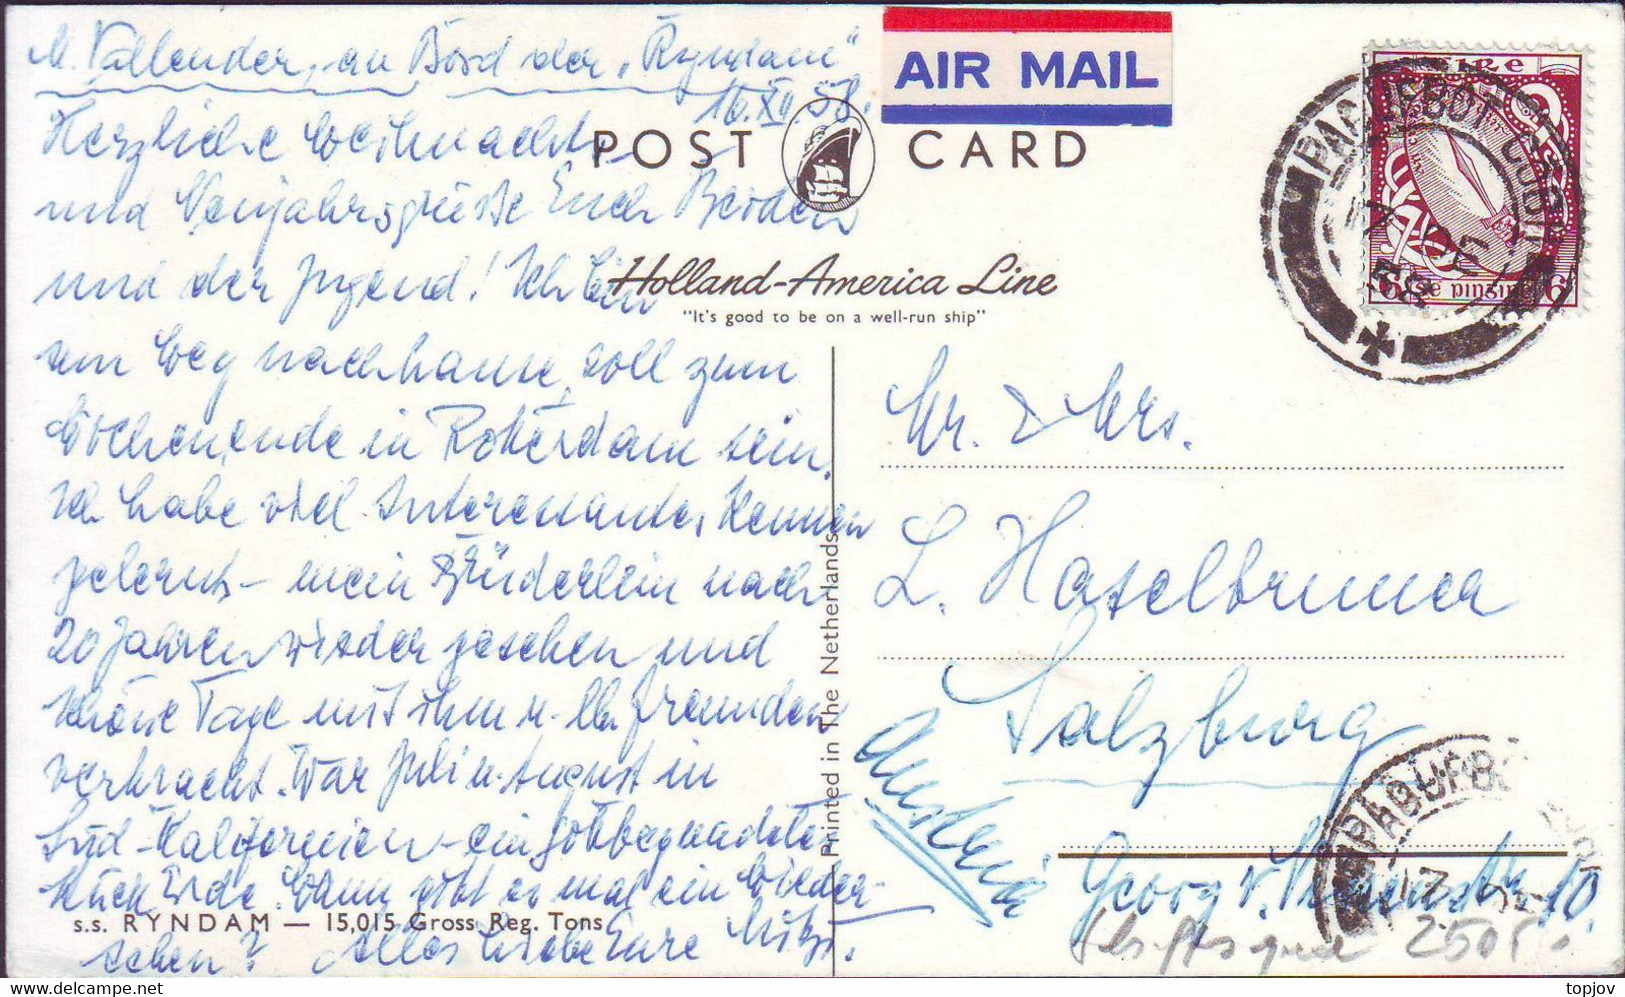 M. Vallender, an Bord der „Ryndam“
16.XII.58.
Herzliche Weihnachts-
und Neujahrsgrüsse Euch Beiden
und der Jugend! Ich bin
am Weg nachhause, soll zum
Wochenende in Rotterdam sein.
Ich habe viel Interessantes kennen
gelernt – mein Brüderlein nach
20 Jahren wieder gesehen und
schöne Tage mit ihm u. Freunden
verbracht. War Juli u. August in
Süd-Kalifornien – ein gottbegnadetes
Stück Erde. Wann gibt es mal ein Wieder-
sehen? Alles Liebe Eure Mitzi.
AIR MAIL
POST CARD
Holland-America Line
"It's good to be on a well-run ship"
ÉIRE
6 6
PACUFBOT
Mr. & Mrs.
L. Haselbrunner
Salzburg
Austria
Georg v.
10.
PADUFBO
2505
Printed in The Netherlands
s.s. RYNDAM — 15,015 Gross Reg. Tons
topjov